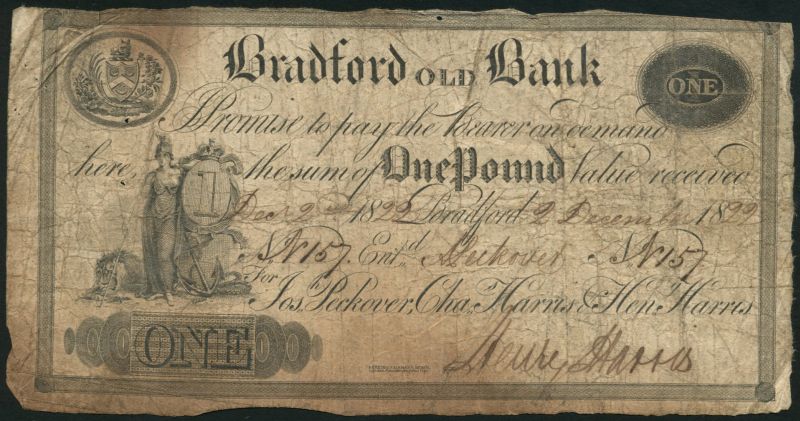 Bradford OLD Bank
ONE
I Promise to pay the Bearer on demand
here, the sum of One Pound Value received
1
Decr 2nd 1822 Bradford 2 December 1822
No N157 Entd Peckover No N157
For Josh Peckover, Chas Harris & Heny Harris
ONE
Henry Harris